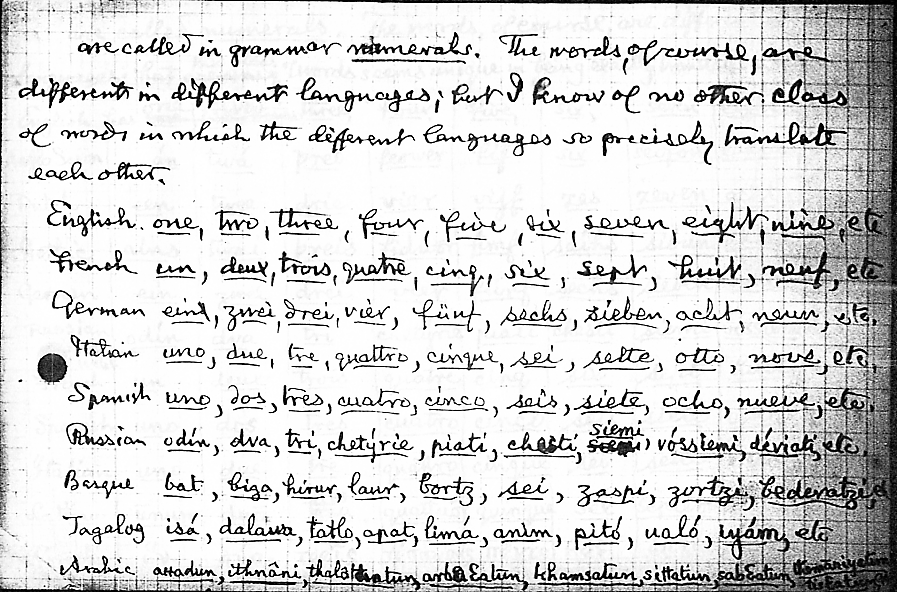 are called in grammar numerals. The words, of course, are
different in different languages; but I know of no other class
of words in which the different languages so precisely translate
each other.
English. one, two, three, four, five, six, seven, eight, nine, etc
French un, deux, trois, quatre, cinq, six, sept, huit, neuf, etc
German ein, zwei, drei, vier, fünf, sechs, sieben, acht, neun, etc.
Italian uno, due, tre, quattro, cinque, sei, sette, otto, nove, etc.
Spanish uno, dos, tres, cuatro, cinco, seis, siete, ocho, nueve, etc.
Russian odín, dva, tri, chetýrie, piati, siemi, vóssiemi, déviati, etc.
Basque bat, biga, hirur, laur, bortz, sei, zazpi, zortzi, bederatzi,
Tagalog isá, dalawa, tatlo, apat, limá, anim, pitó, ualó, iyám, etc
Arabic ithnâni, khamsatun, sittatun, sabEatun,